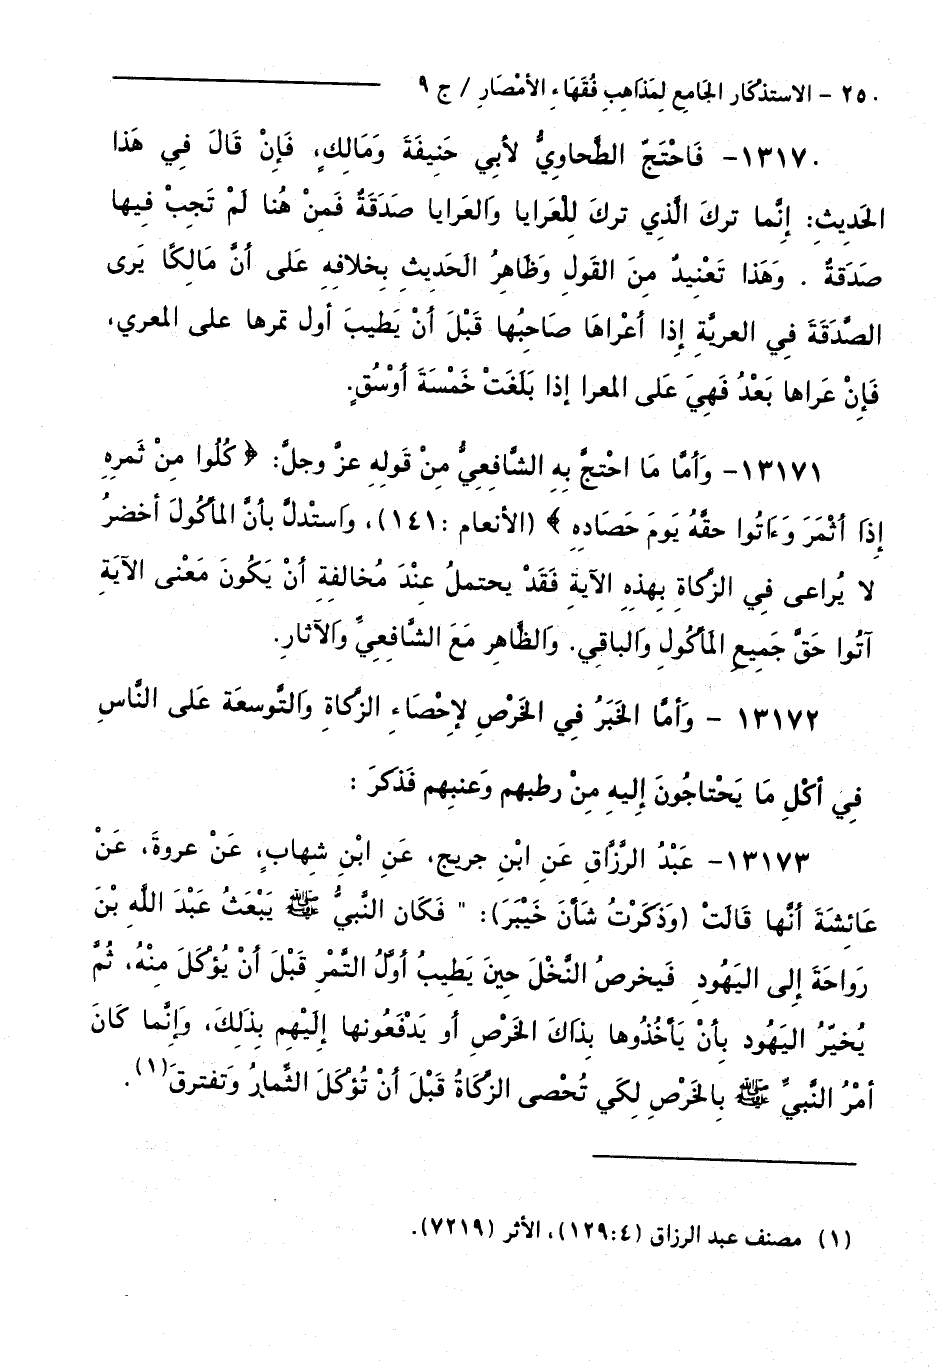 ٢٥٠ - الاستذكار الجامع لمذاهب فُقَهَاءِ الأمْصَارِ / ج ٩
١٣١٧٠- فَاحْتَجّ الطَّحاوِيُّ لأبِي حَنِيفَةَ وَمَالِكٍ، فَإِنْ قَالَ فِي هَذا
الحَدِيثِ: إِنَّما تركَ الَّذي تركَ لِلْعَرايا وَالعَرايا صدَقَةٌ فَمنْ هُنا لَمْ تَجِبْ فِيها
صَدَقةٌ . وَهَذا تَعْنِيدٌ مِنَ القَولِ وَظَاهِرُ الحَدِيثِ بِخلافِهِ عَلى أنَّ مَالِكًا يَرى
الصَّدَقَةَ فِي العريَّةِ إِذا أعْراهَا صَاحِبُها قَبْلَ أنْ يَطِيبَ أول تمرها على المعري،
فَإِنْ عَراها بَعْدُ فَهِيَ عَلى المعرا إذا بَلَغَتْ خَمْسَةَ أوْسُقٍ.
١٣١٧١- وَأمَّا مَا احْتجَّ بِهِ الشَّافِعيُّ مِنْ قولِهِ عزَّ وجلَّ: ﴿ كُلُوا مِنْ ثَمره
إِذَا أثْمَرَ وَءَاتُوا حقَّهُ يَومَ حَصَادِهِ ﴾ (الأنعام :١٤١)، وَاستْدلَّ بأنَّ المأكُولَ أخضرُ
لا يُراعى فِي الزَّكاةِ بِهذِهِ الآيةِ فَقَدْ يحتملُ عِنْدَ مُخالفةِ أنْ يَكُونَ مَعْنى الآيَةِ
آتُوا حَقَّ جَمِيعِ المَأكُولِ وَالباقِي. وَالظَّاهِر مَعَ الشَّافِعِيِّ وَالآثارِ.
١٣١٧٢ - وَأمَّا الخَبَرُ فِي الخَرْصِ لإحْصَاءِ الزَّكاةِ وَالتَّوسعَة عَلى النَّاسِ
فِي أكْلِ مَا يَحْتاجُونَ إِليهِ مِنْ رطبهم وَعنبِهم فَذكرَ :
١٣١٧٣- عَبْدُ الرَّزَّاقِ عَنِ ابْنِ جريج، عَنِ ابْنِ شهابٍ، عَنْ عروةَ، عَنْ
عَائِشَةَ أنَّها قَالَتْ (وَذَكَرْتُ شَأنَ خَيْبَرَ): " فَكَان النَّبيُّ ﷺ يَبْعَثُ عَبْدَ اللَّهِ بْنَ
رَواحَةَ إِلى اليَهُودِ فَيخرصُ النَّخْلَ حِينَ يَطِيبُ أوَّلُ التَّمْرِ قَبْلَ أنْ يُؤْكَلَ مِنْهُ، ثُمَّ
يُخيَّرُ اليَهُودَ بِأنْ يَأخُذُوها بذاكَ الخَرْصِ أو يَدْفَعُونها إِلَيْهِم بِذَلِكَ، وَإِنَّما كَانَ
أمْرُ النَّبيِّ ﷺ بِالخَرْصِ لِكَي تُحْصى الزَّكاةُ قَبْلَ أنْ تُؤكلَ الثَّمارُ وَتفترقَ(١).
(١) مصنف عبد الرزاق (١٢٩:٤)، الأثر (٧٢١٩).